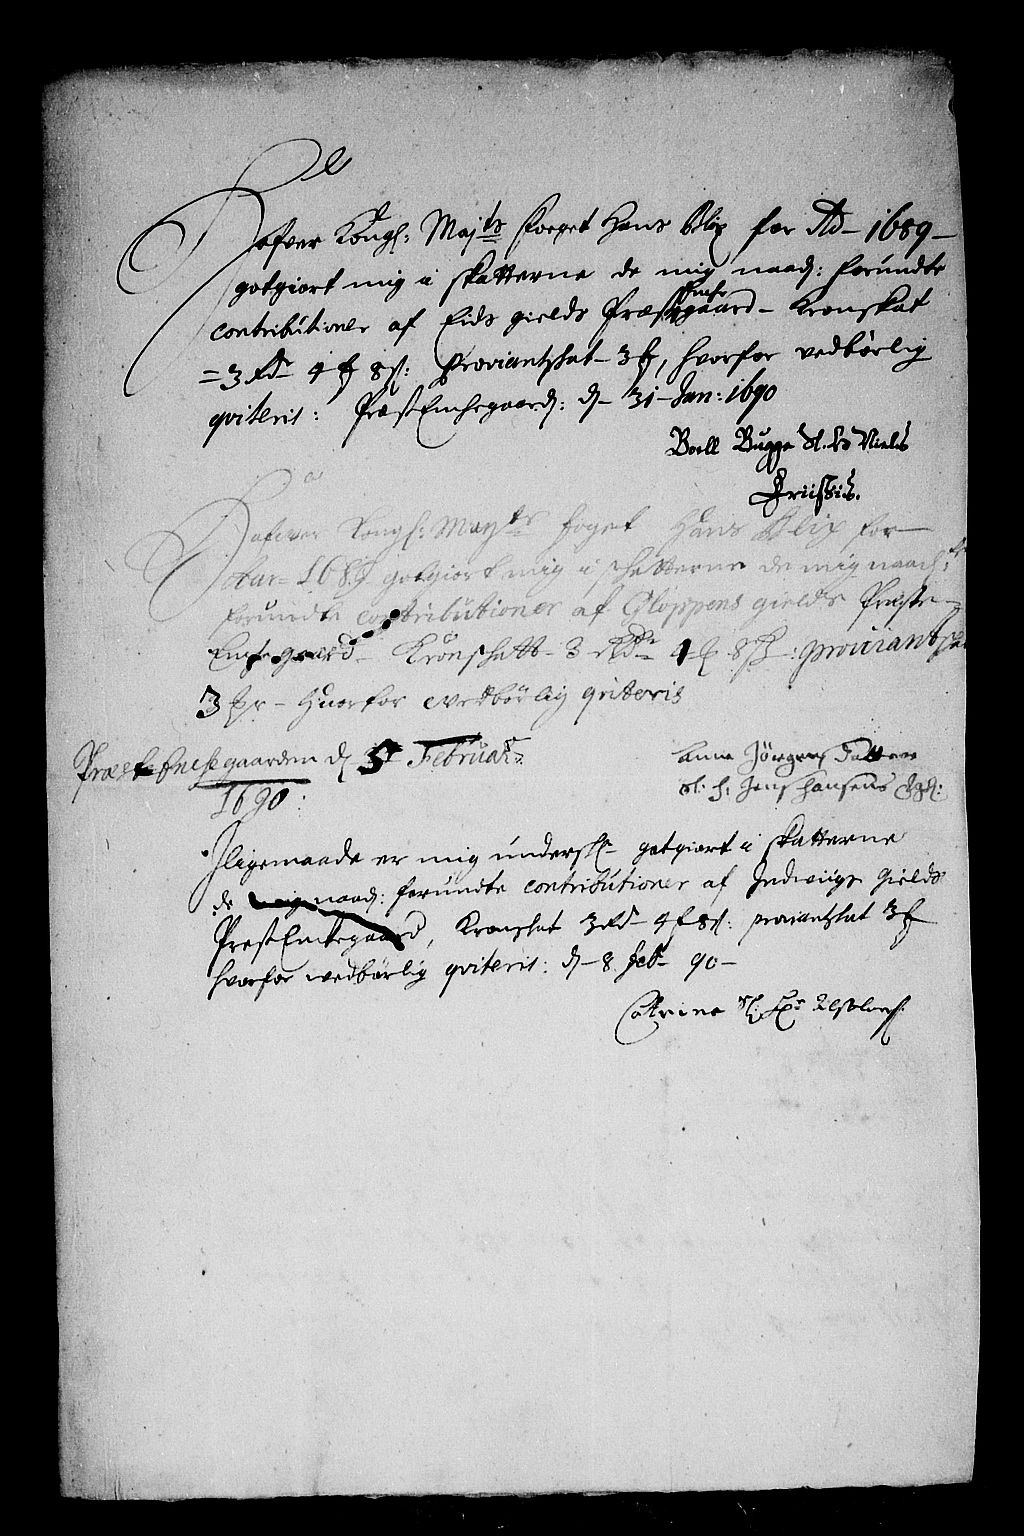 Hafver Kongl: Majts foeget Hans Blix for Ao 1689
gotgiort mig i skatterne de mig naad: forundte
contributioner af Eids gields Præst Enche gaard Kronskat
= 3 Rd 4 ß: Proviantskat 3, hvorfor vedbørlig
qviteris: PræstEnchegaard: d 31 Jan: 1690
Boell Bugge Sl. Niels
Friisis.
Hafver Kongl: Mayts foget Hans Blix for
Aar 1689 gotgiort mig i schatterne de mig naad:
forundte contributioner af Gloppens gields Præste
Enche gaard Kronschatt 3 Rdr 4 8 ß: proviantscha
3 hvorfor vedbørlig qviteris
Præst Enche gaarden d 5 Februar:
1690:
Anne Jørgens Datter
Sl: H: Jens Hansens
Iligemaade er mig undersk gotgiort i skatterne
de mig naad: forundte contributioner af Indviigs Gields
PræstEnchegaard, Kronskat 3 Rd 4 8 ß: proviantskat 3
hvorfor vedbørlig qviteris: d 8 Feb 90
Catrine Sl: Hr